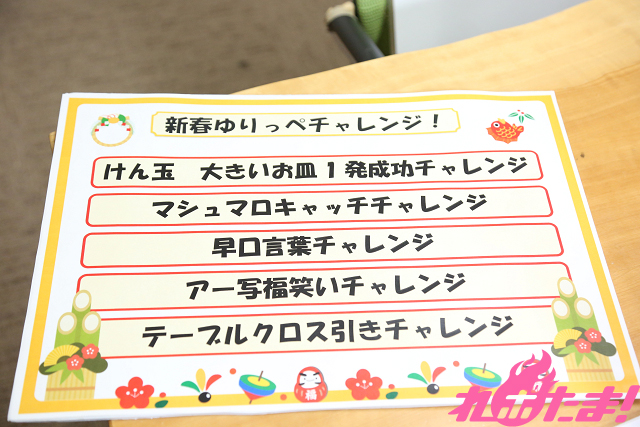 新春ゆりっぺチャレンジ！
けん玉　大きいお皿1発成功チャレンジ
マシュマロキャッチチャレンジ
早口言葉チャレンジ
アー写福笑いチャレンジ
テーブルクロス引きチャレンジ
福